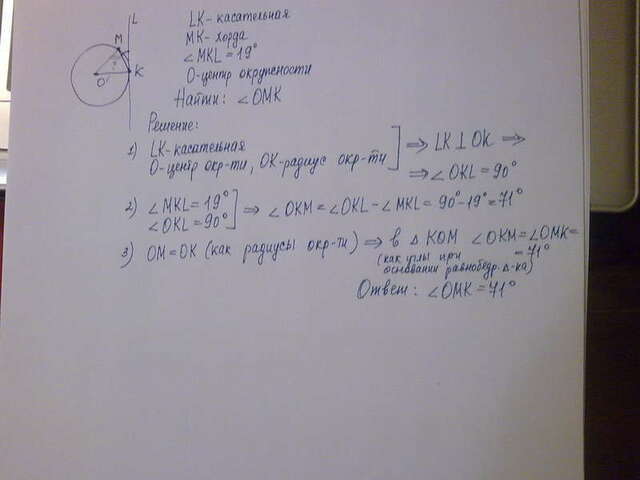 L
M
O
K
LK - касательная
MK - хорда
∠MKL = 19°
O - центр окружности
Найти: ∠OMK
Решение:
1) LK - касательная
O - центр окр-ти, OK - радиус окр-ти ] ⇒ LK ⊥ OK ⇒
⇒ ∠OKL = 90°
2) ∠MKL = 19°
∠OKL = 90° ] ⇒ ∠OKM = ∠OKL - ∠MKL = 90° - 19° = 71°
3) OM = OK (как радиусы окр-ти) ⇒ в △KOM ∠OKM = ∠OMK =
= 71°
(как углы при
основании равнобедр. △-ка)
Ответ: ∠OMK = 71°